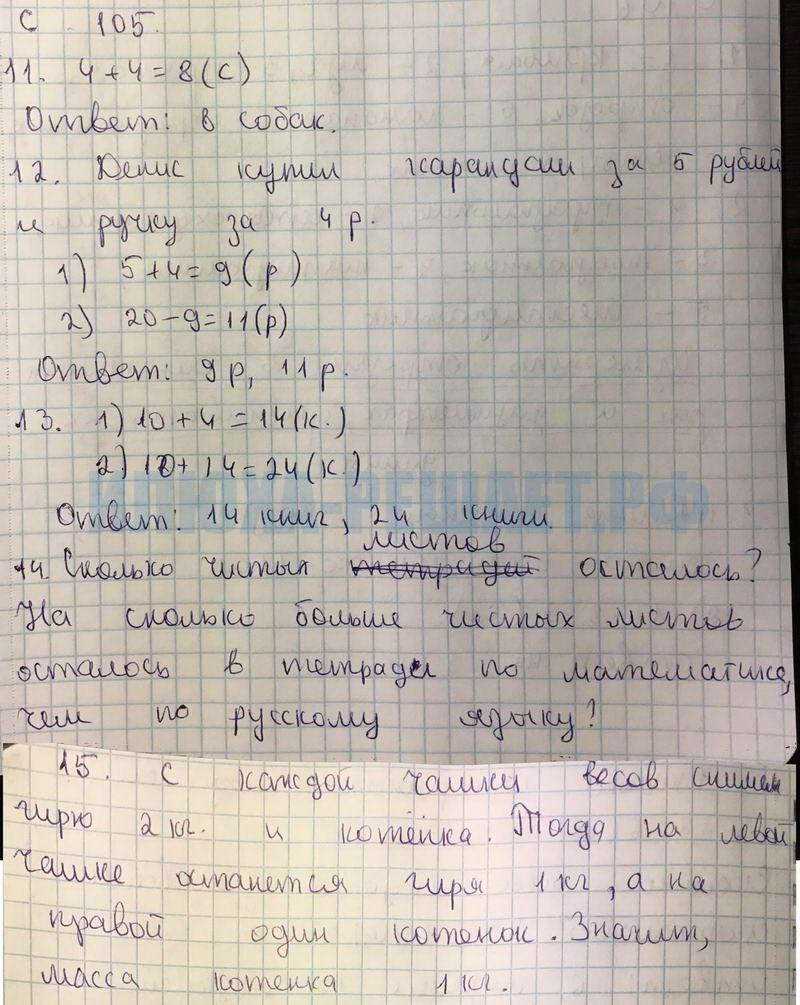 С 105.
11. 4+4=8(с)
Ответ: 8 собак.
12. Денис купил карандаш за 5 рублей
и ручку за 4 р.
1) 5+4=9(р)
2) 20-9=11(р)
Ответ: 9р, 11р.
13. 1) 10+4=14(к.)
2) 10+14=24(к.)
Ответ: 14 книг, 24 книги
листов
14. Сколько чистых тетрадей осталось?
На сколько больше чистых листов
осталось в тетради по математике,
чем по русскому языку?
15. С каждой чашки весов снимем
гирю 2кг. и котёнка. Тогда на левой
чашке останется гиря 1кг, а на
правой один котенок. Значит,
масса котенка 1кг.